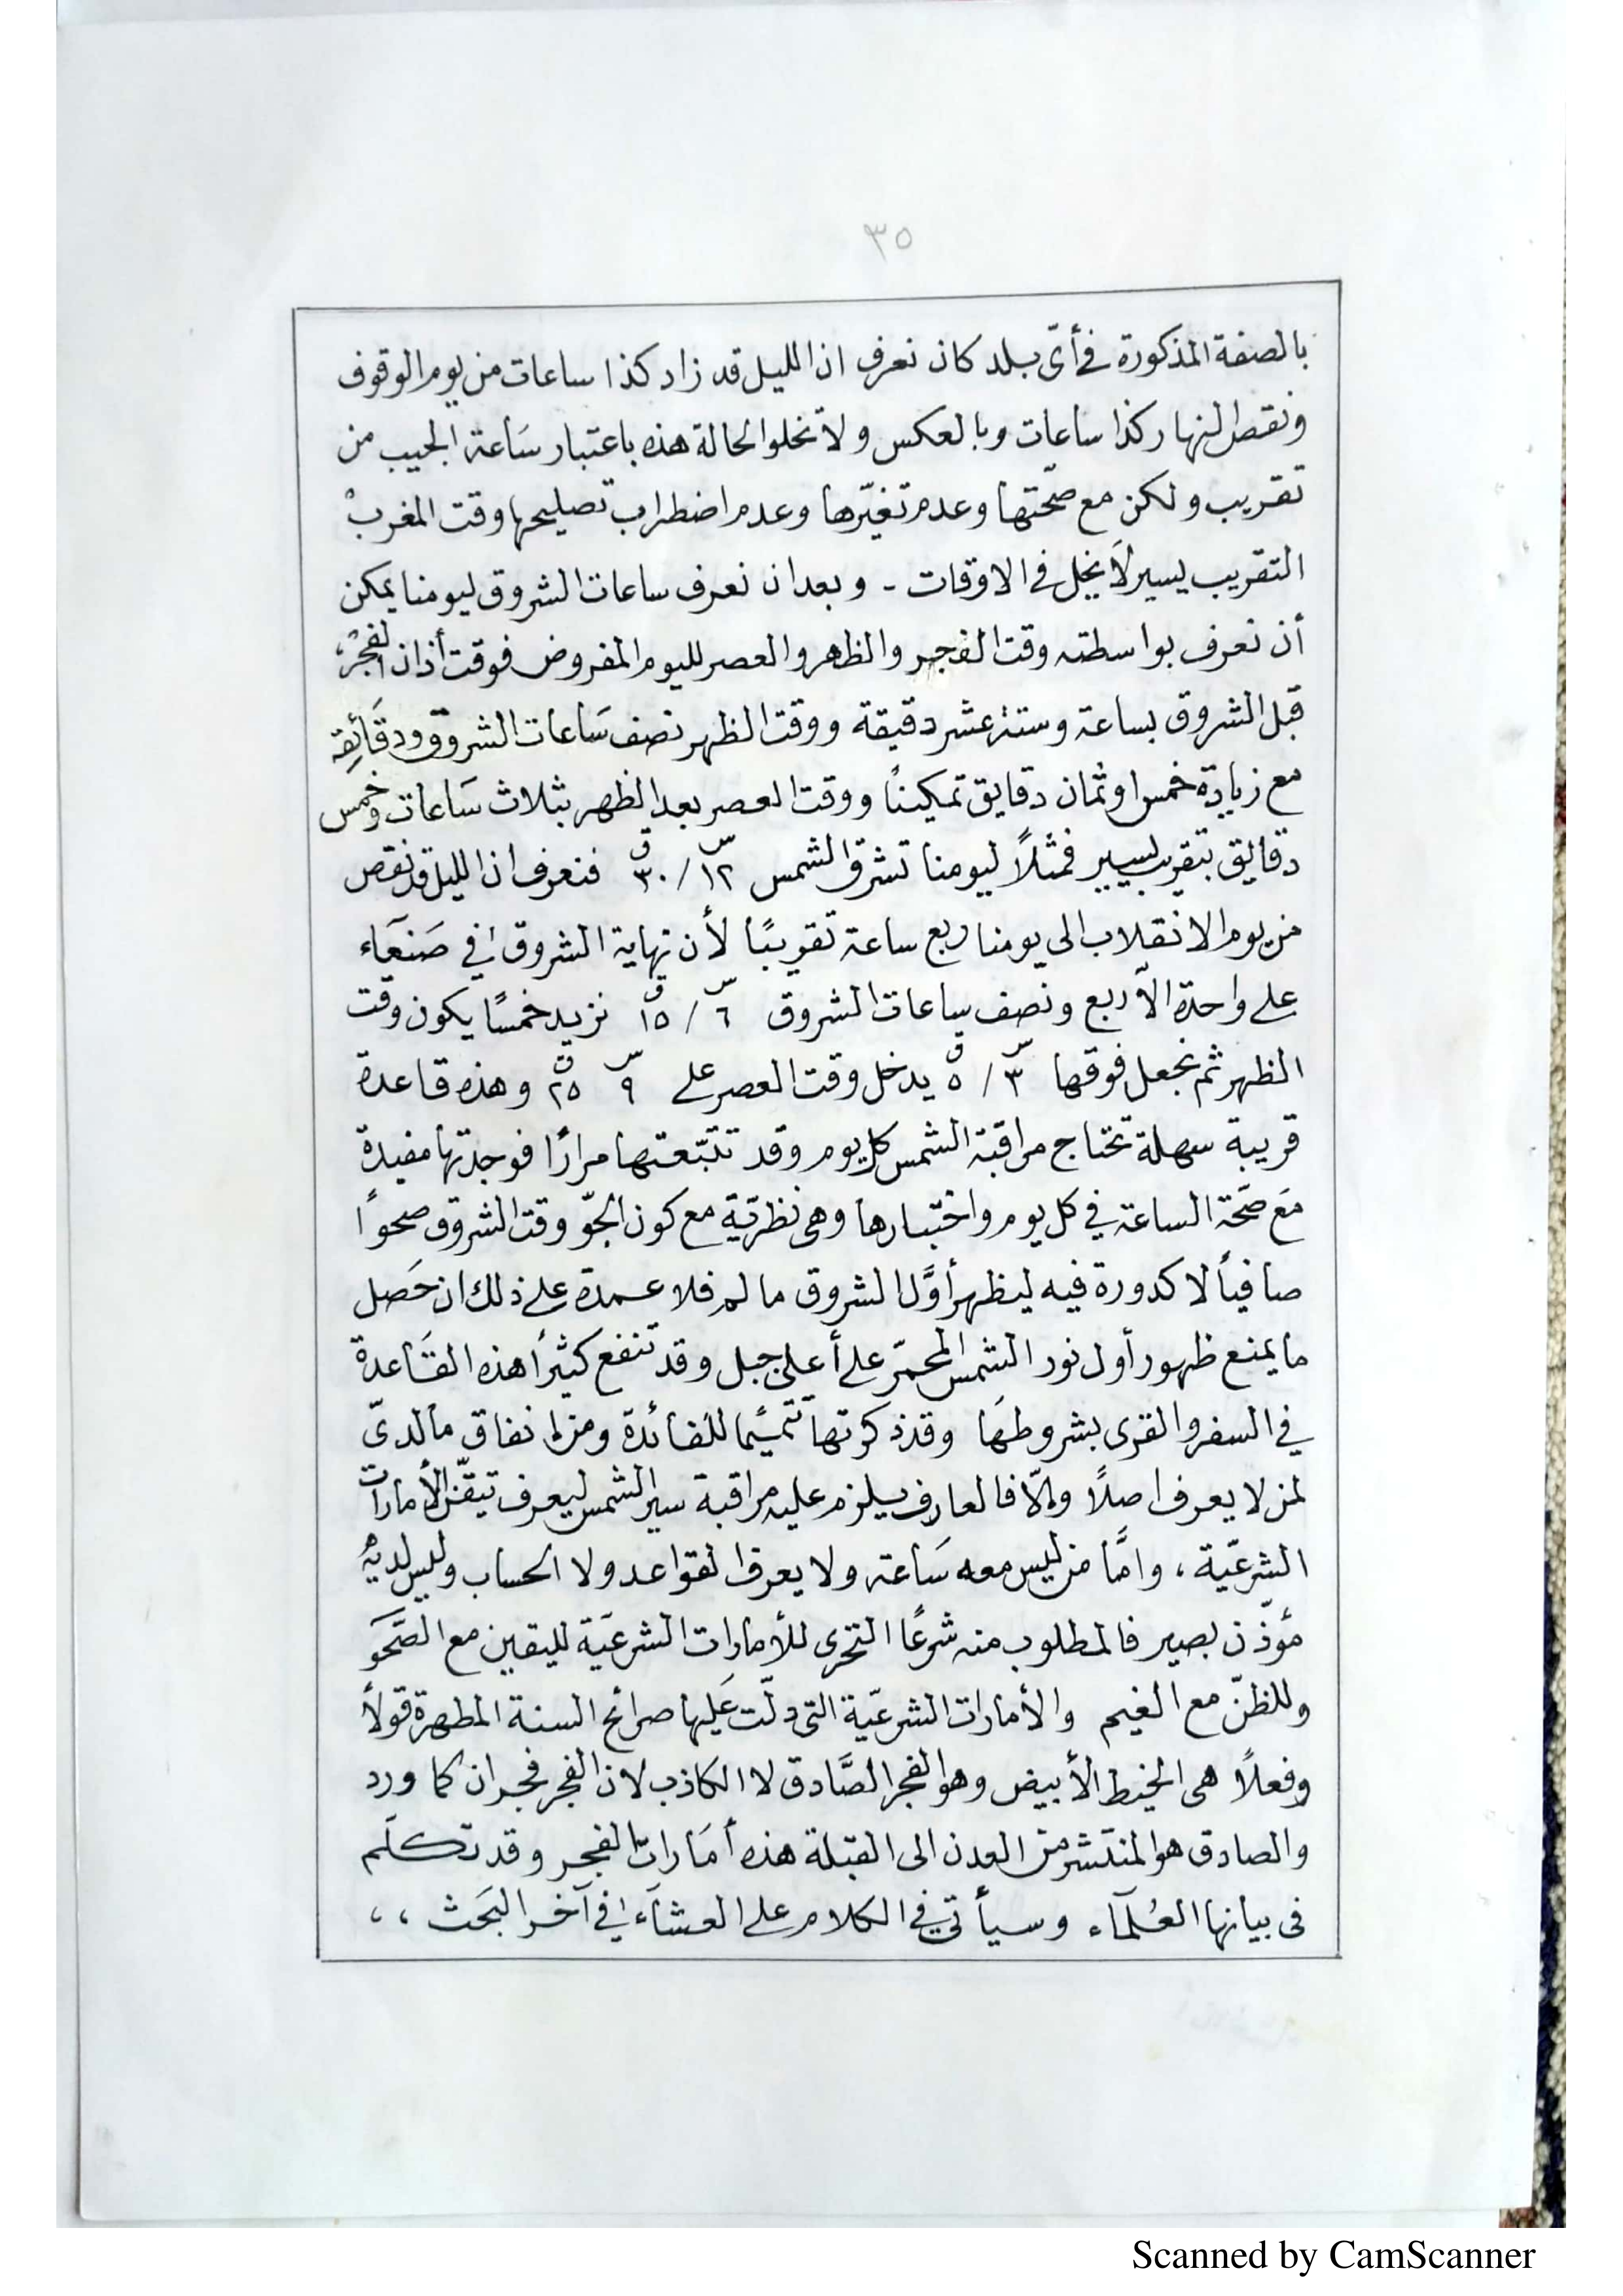 ٣٥
بالصفة المذكورة في أىّ بلد كان نعرف ان الليل قد زاد كذا ساعات من يوم الوقوف
ونقص النهار كذا ساعات وبالعكس ولا تخلوا الحالة هذه باعتبار سَاعة الجيب من
تقريب ولكن مع صحّتها وعدم تغيّرها وعدم اضطراب تصليحها وقت المغرب
التقريب يسير لا يخل في الاوقات - وبعد ان نعرف ساعات الشروق ليومنا يمكن
أن نعرف بواسطته وقت الفجر والظهر والعصر لليوم المفروض فوقت أذان الفجر
قبل الشروق بساعة وستة عشر دقيقة ووقت الظهر نصف سَاعات الشروق ودقَائقِه
مع زيادة خمس او ثمان دقايق تمكيناً ووقت العصر بعد الظهر بثلاث سَاعات وخمس
دقايق بتقريب يسير فمثلاً ليومنا تشرق الشمس ١٢ س / ٣٠ ق فنعرف ان الليل قد نقص
من يوم الانقلاب الى يومنا ربع ساعة تقريبًا لأن نهاية الشروق في صَنعَاء
على واحدة الّا ربع ونصف ساعات الشروق ٦ س / ١٥ ق نزيد خمسًا يكون وقت
الظهر ثم نجعل فوقها ٣ س / ٥ ق يدخل وقت العصر على ٩ س ٢٥ ق وهذه قاعدة
قريبة سهلة تحتاج مراقبة الشمس كل يوم وقد تتبّعتها مرارًا فوجدتها مفيدة
مَع صَحة الساعة في كل يوم واختبارها وهى نظريّة مع كون الجوّ وقت الشروق صحوًا
صافياً لا كدورة فيه ليظهر أوَّل الشروق ما لم فلا عمدة على ذلك ان حَصل
ما يمنع ظهور أول نور الشمس المحمرّ على أعلى جبل وقد تنفع كثيرًا هذه القَاعدة
في السفر والقرى بشروطهَا وقد ذكرتها تتميمًا للفائدة ومن انفاق ما لدىّ
لمن لا يعرف اصلًا والّا فالعارف يلزم عليه مراقبة سير الشمس ليعرف تيقّن الأمارات
الشرعيّة ، وامَّا من ليس معه سَاعة ولا يعرف القواعد ولا الحساب وليس لديه
مؤذّن بصير فالمطلوب منه شرعًا التحرى للأمارات الشرعيَة لليقين مع الصَّحَو
وللظنّ مع الغيم والأمارات الشرعيّة التى دلّت عَليها صرائح السنة المطهرة قولاً
وفعلاً هى الخيط الأبيض وهو الفجر الصَّادق لا الكاذب لان الفجر فجران كما ورد
والصادق هو المنتشر من العدن الى القبلة هذه أمَارات الفجر وقد تكلم
فى بيانها العُلمآء وسيأتي في الكلام على العشآء في آخر البَحث ،،
Scanned by CamScanner